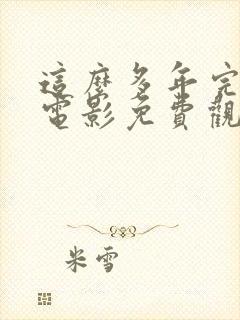 這麼多年完
電影免費觀
米雪